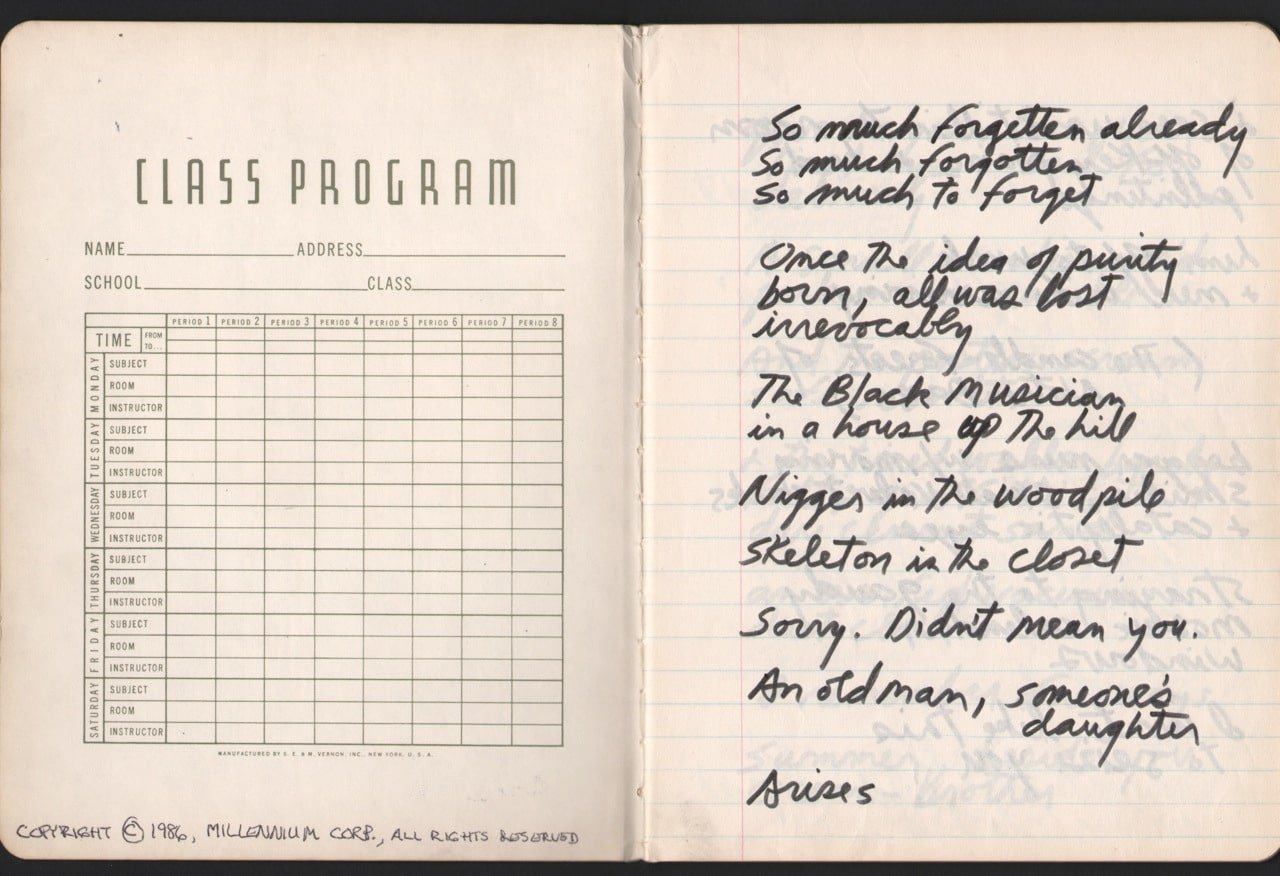 CLASS PROGRAM
NAME ADDRESS
SCHOOL CLASS
PERIOD 1 PERIOD 2 PERIOD 3 PERIOD 4 PERIOD 5 PERIOD 6 PERIOD 7 PERIOD 8
TIME FROM
TO...
MONDAY
SUBJECT
ROOM
INSTRUCTOR
TUESDAY
SUBJECT
ROOM
INSTRUCTOR
WEDNESDAY
SUBJECT
ROOM
INSTRUCTOR
THURSDAY
SUBJECT
ROOM
INSTRUCTOR
FRIDAY
SUBJECT
ROOM
INSTRUCTOR
SATURDAY
SUBJECT
ROOM
INSTRUCTOR
MANUFACTURED BY S. E. & M. VERNON, INC., NEW YORK, U. S. A.
COPYRIGHT © 1986, MILLENNIUM CORP., ALL RIGHTS RESERVED
So much forgetten already
So much forgotten
So much to forget
Once the idea of purity
born, all was lost
irrevocably
The Black Musician
in a house up the hill
Nigger in the woodpile
Skeleton in the closet
Sorry. Didn't mean you.
An old man, someone's
daughter
Arises